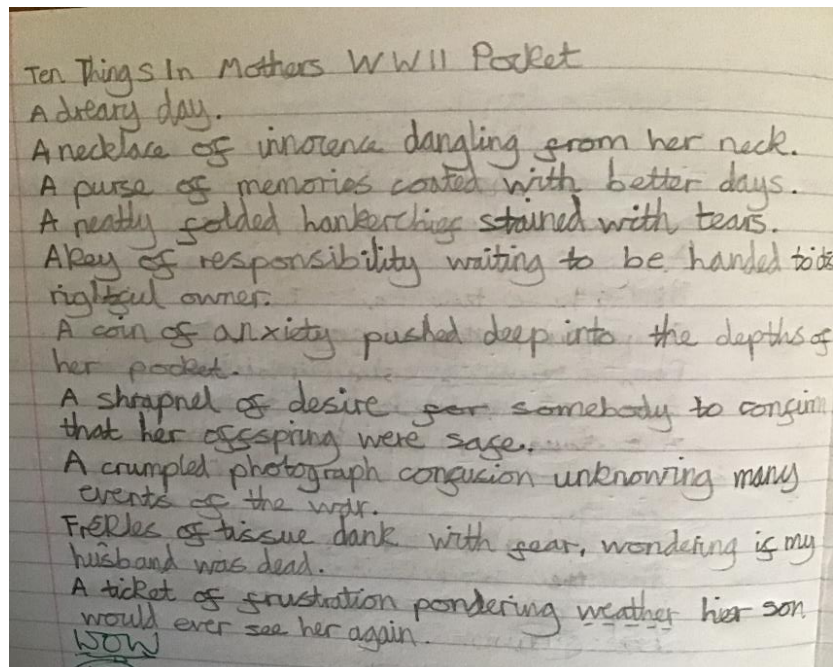 Ten Things In Mothers WWII Pocket
A dreary day.
A necklace of innocence dangling from her neck.
A purse of memories coated with better days.
A neatly folded hankerchief stained with tears.
A key of responsibility waiting to be handed to its
rightful owner.
A coin of anxiety pushed deep into the depths of
her pocket.
A shrapnel of desire for somebody to confirm
that her offspring were safe.
A crumpled photograph confusion unknowing many
events of the war.
Frekles of tissue dank with fear, wondering if my
husband was dead.
A ticket of frustration pondering weather her son
would ever see her again.
WOW